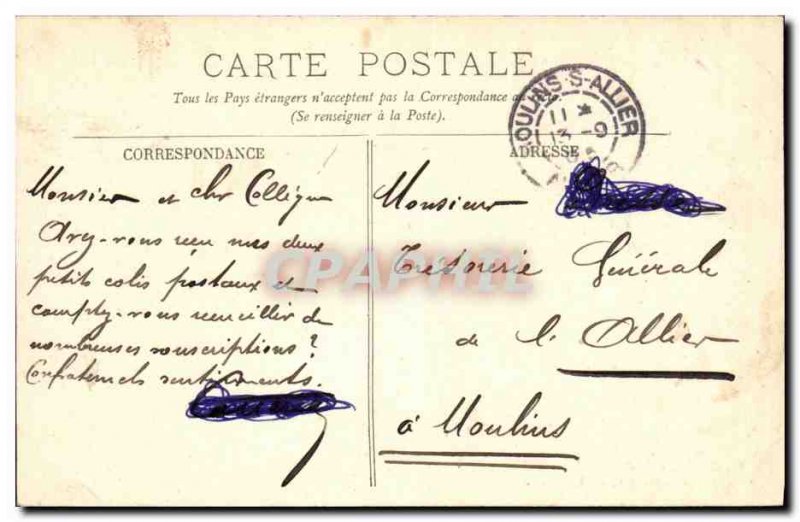 CARTE POSTALE
Tous les Pays étrangers n'acceptent pas la Correspondance au
(Se renseigner à la Poste).
CORRESPONDANCE
ADRESSE
OULINS-S-ALLIER
11
13 -9
Monsieur et cher Collègue
Avez-vous reçu mes deux
petits colis postaux et
comptez-vous recueillir de
nombreuses souscriptions ?
Confraternels sentiments.
Monsieur
Trésorerie Générale
de l'Allier
à Moulins
CPAPHIL